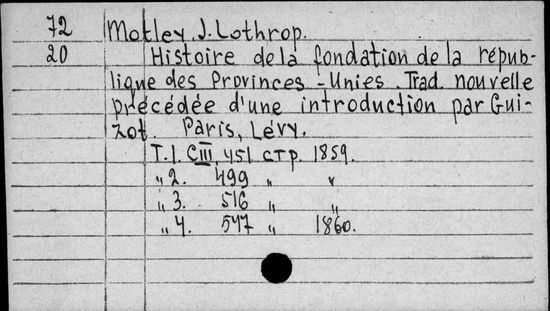 72 Motley J. Lothrop.
20 Histoire de la fondation de la répub-
lique des Provinces-Unies. Trad. nouvelle
précédée d'une introduction par Gui-
zot. Paris, Lévy.
T.1. CIII, 451 стр. 1859.
„ 2. 499 „ „
„ 3. 516 „ „
„ 4. 547 „ 1860.